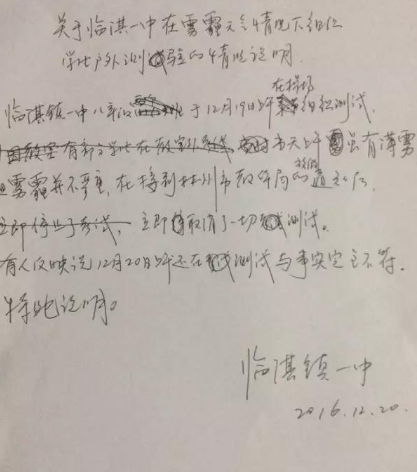 关于临淇一中在雾霾天气情况下组织
学生户外测验的情况说明
临淇镇一中八年级于12月19日上午在操场组织测试.
当天上午虽有薄雾
但雾霾并不重,在接到林州市教体局的通知后,
立即停止了考试,立即取消了一切测试。
有人反映说12月20日上午还在测试与事实完全不符.
特此说明。
临淇镇一中
2016.12.20.